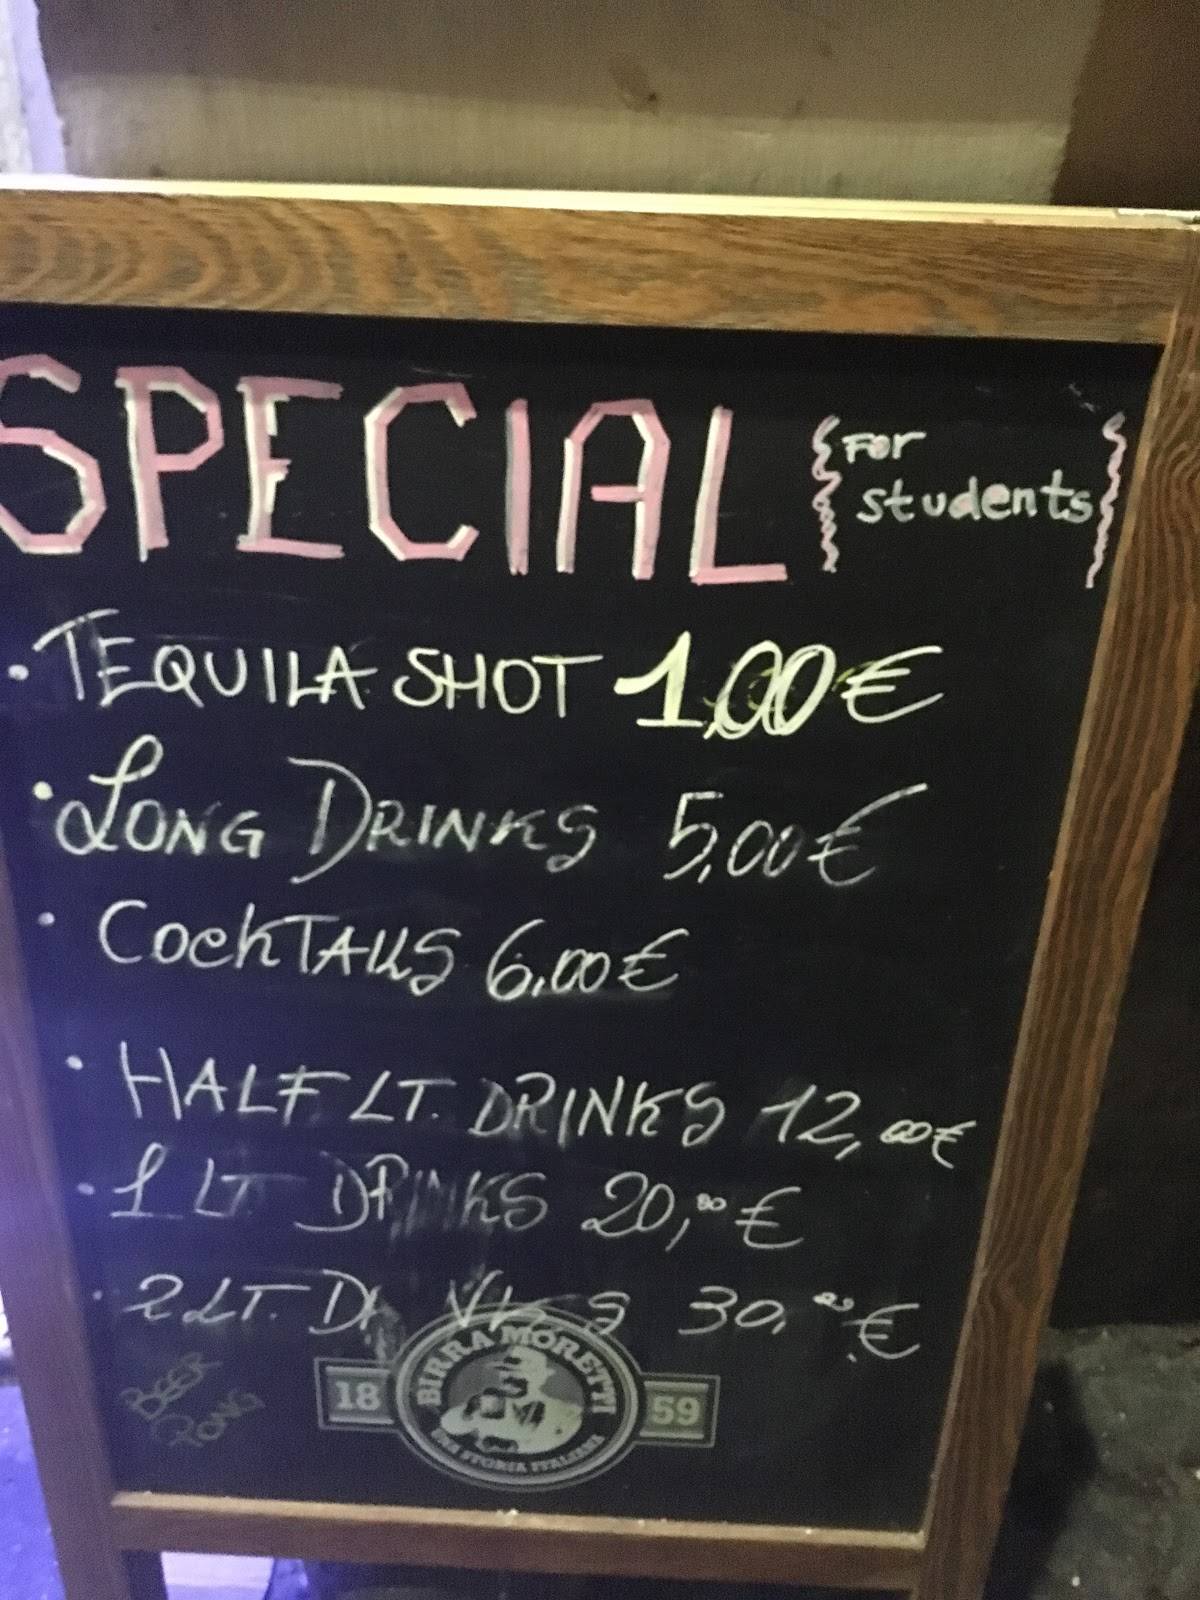 SPECIAL
For
students
• TEQUILA SHOT 1,00€
• LONG DRINKS 5,00€
• COCKTAILS 6,00€
• HALF LT. DRINKS 12,00€
• 1 LT. DRINKS 20,00 €
• 2 LT. DRINKS 30,00 €
BEER
PONG
BIRRA MORETTI
18 59
UNA STORIA ITALIANA